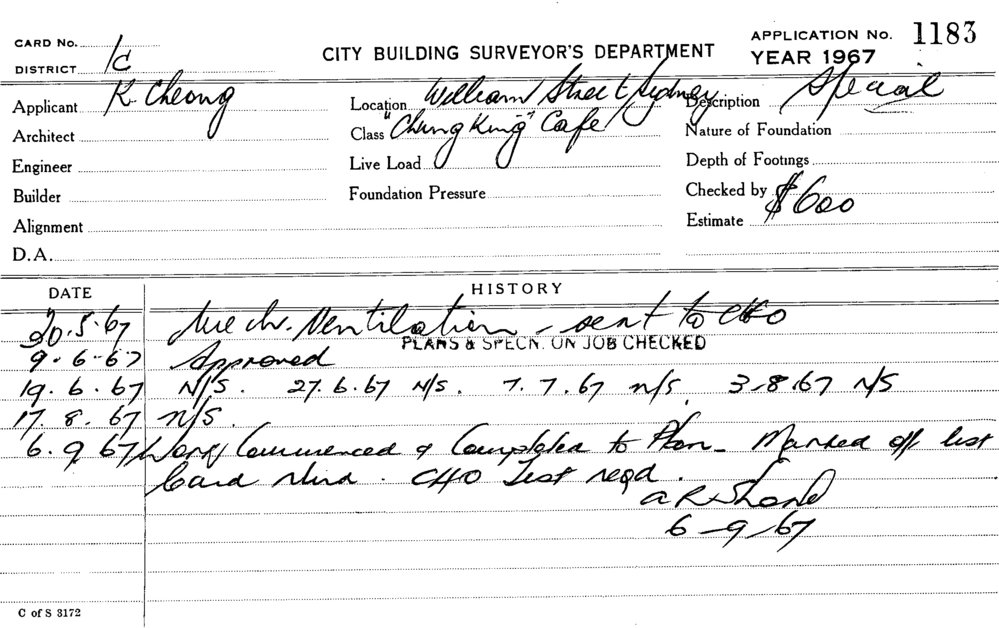 CARD No. 1c
DISTRICT
CITY BUILDING SURVEYOR'S DEPARTMENT
APPLICATION No. 1183
YEAR 1967
Applicant K. Cheong
Location William Street Sydney
Description Special
Architect
Class "Chung King" Cafe
Nature of Foundation
Engineer
Live Load
Depth of Footings
Builder
Foundation Pressure
Checked by
Alignment
Estimate $600
D.A.
DATE
HISTORY
20.5.67 Mech. Ventilation - sent to CHO
PLANS & SPECN. ON JOB CHECKED
9.6.67 Approved
19.6.67 N/S. 27.6.67 N/S. 7.7.67 N/S. 3-8.67 N/S
17.8.67 N/S.
6.9.67 Commenced & Completed to Plan - Marked off list
Card CHO Test reqd.
6-9-67
C of S 3172